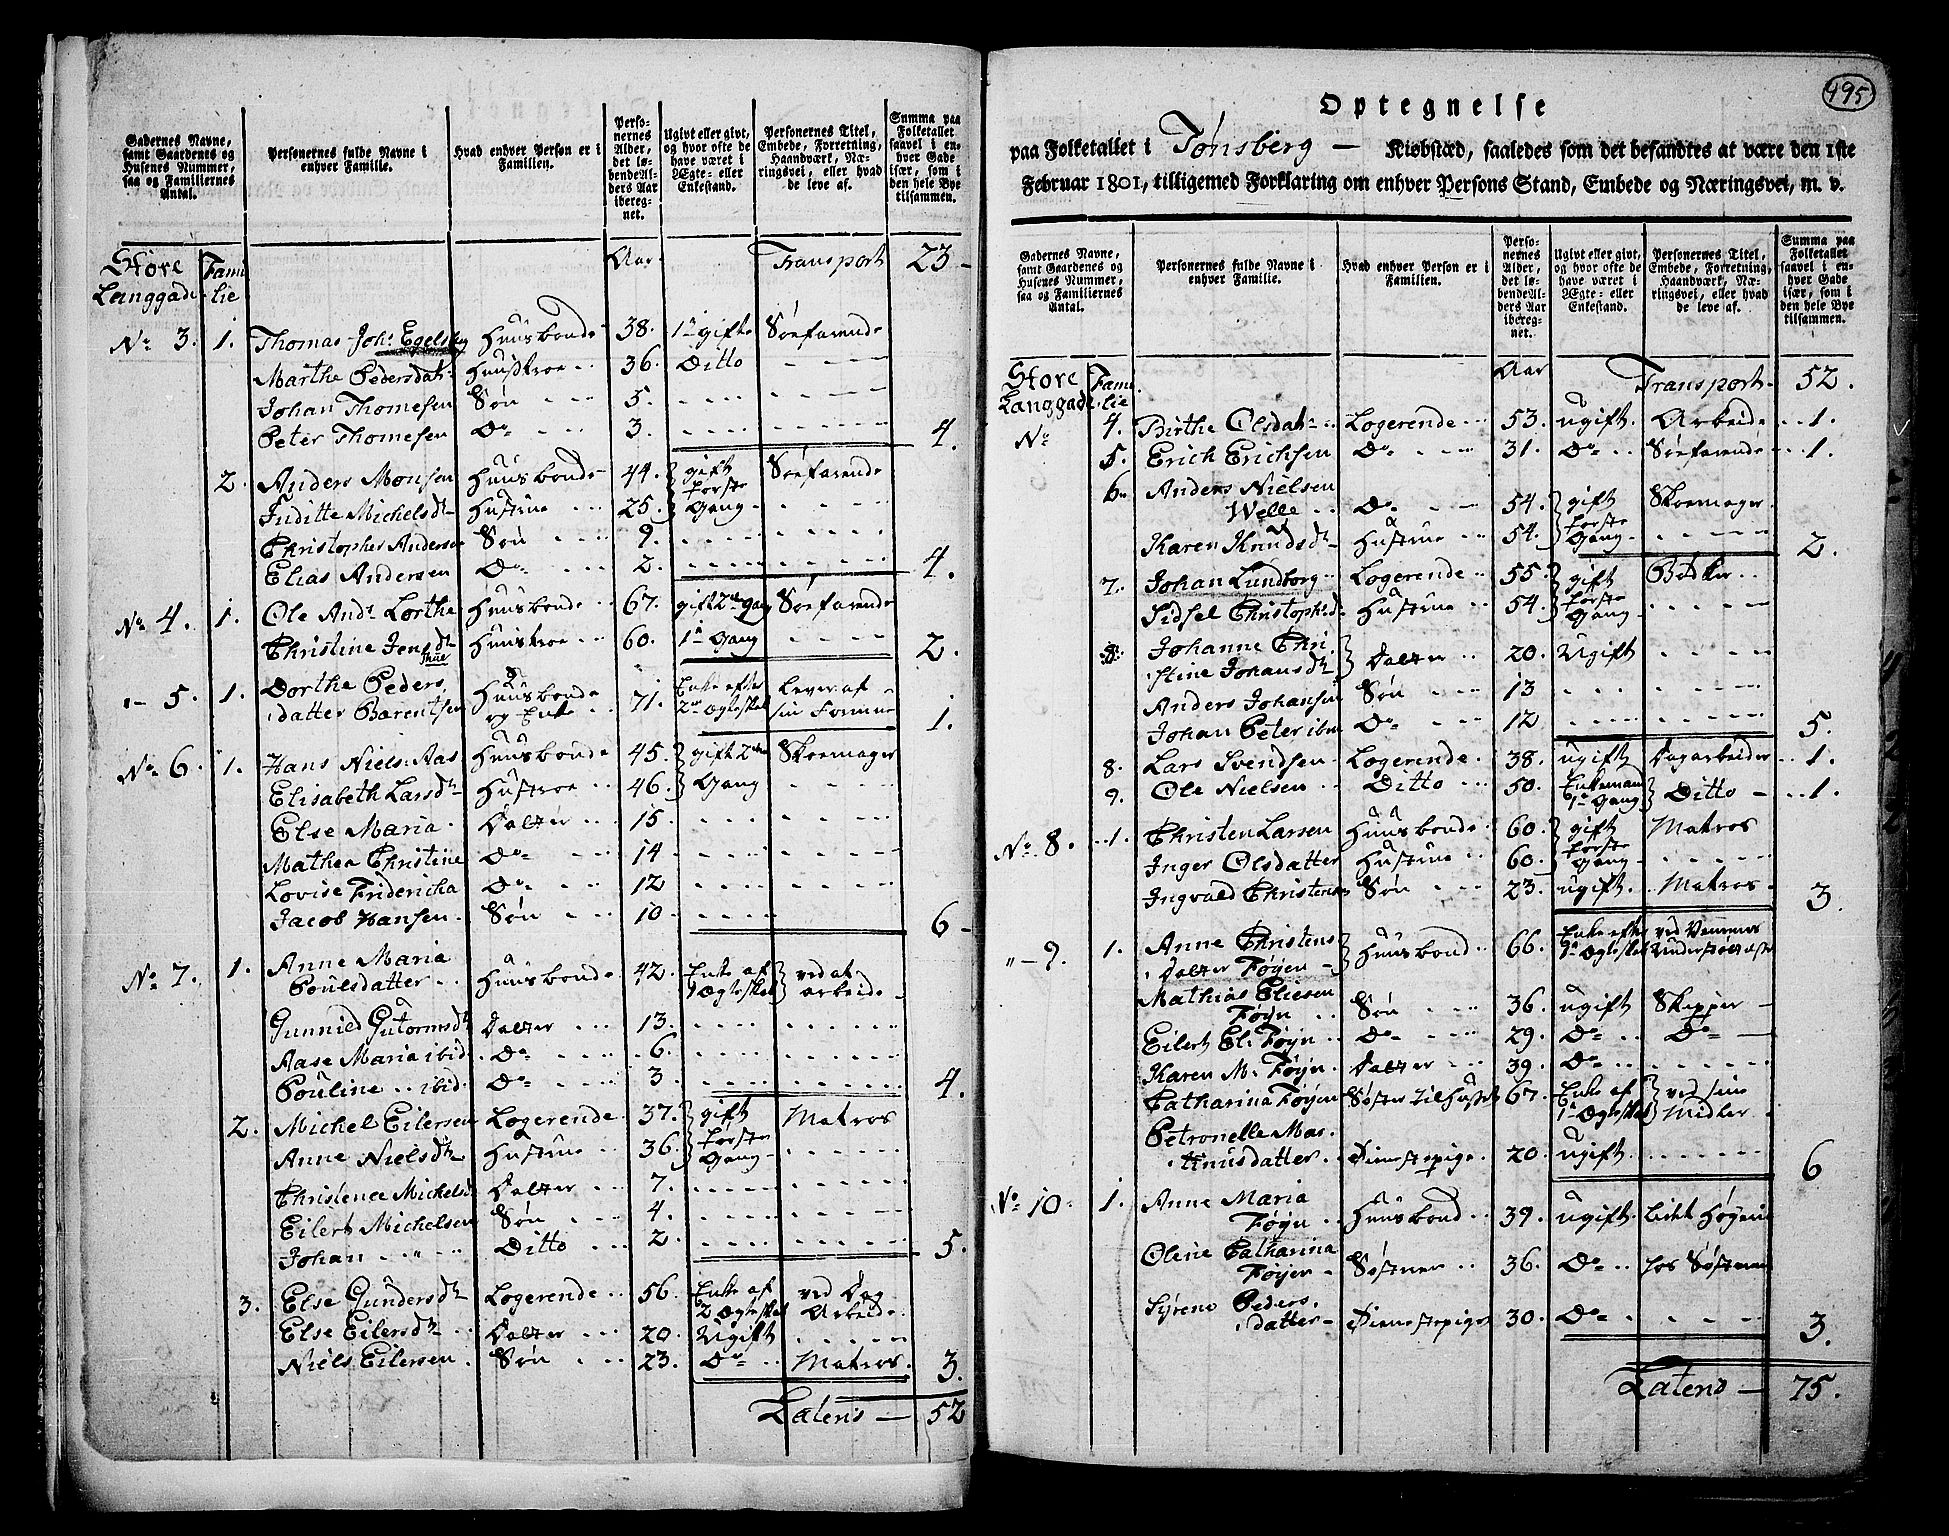 Gadernes Navne, samt Gaardenes og Husenes Nummer, saa og Familiernes Antal.
Personernes fulde Navne i enhver Familie.
Hvad enhver Person er i Familien.
Personernes Alder, det løbende Alders Aar iberegnet.
Ugivt eller givt, og hvor ofte de have været i Ægte- eller Enkestand.
Personernes Titel, Embede, Forretning, Haandværk, Næringsvei, eller hvad de leve af.
Summa paa Folketallet saavel i enhver Gade især, som i den hele Bye tilsammen.
Store Langgade Familie Aar Transport 23 -
No 3. 1. Thomas Johs Egelsby Huusbonde 38. 1te gifte Søefarende
Marthe Pedersdatr Huusktroe 36. Ditto
Johan Thomesen Søn 5.
Peter Thomesen Do 3. 4.
2. Anders Monsen Huusbonde 44. gift første Gang Søefarende
Juditte Michelsdr Hustrue 25.
Christopher Andersen Søn 9.
Elias Andersen Do 2. 4.
No 4. 1. Ole Andr Lorthe Huusbonde 67. gift 2den Gang Søefarende
Christine Jensdr Thue Huustroe 60. 1te Gang 2.
" - 5. 1. Dorthe Peders datter Barentsen Huusbonde og Enke 71. Enke efter 2det Ægteskab Lever af sin Formue 1.
No 6. 1. Hans Niels: Aas Huusbonde 45. gift 2den Gang Skoemager
Elisabeth Larsdr Hustroe 46.
Else Maria Datter 15.
Mathea Christine Do 14
Lovise Fridericha Do 12
Jacob Hansen Søn 10 6 -
No 7. 1. Anne Maria Poulsdatter Huusbonde 42. Enke af 1 Ægteskab ved at arbeide
Gunnied Gutormsdr Datter 13.
Aase Maria ibid Do 6.
Pouline ibid. Do 3. 4.
2. Michel Eilersen Logerende 37. gift første Gang Matros
Anne Nielsdr Hustrue 36.
Christence Michelsd Datter 7.
Eilert Michelsen Søn 4.
Johan " Ditto 2. 5.
3. Else Gundersdr Logerende 56. Enke af 2 Ægteskab ved Dag Arbeide
Else Eilersdr Datter 20. Ugift
Niels Eilersen Søn 23. Do Matros. 3.
Latens - 52
495
Optegnelse
paa Folketallet i Tønsberg - Kiøbstæd, saaledes som det befandtes at være den 1ste
Februar 1801, tilligemed Forklaring om enhver Persons Stand, Embede og Næringsvei, m. v.
Gadernes Navne, samt Gaardenes og Husenes Nummer, saa og Familiernes Antal.
Personernes fulde Navne i enhver Familie.
Hvad enhver Person er i Familien.
Personernes Alder, det løbende Alders Aar iberegnet.
Ugivt eller givt, og hvor ofte de have været i Ægte- eller Enkestand.
Personernes Titel, Embede, Forretning, Haandværk, Næringsvei, eller hvad de leve af.
Summa paa Folketallet saavel i enhver Gade især, som i den hele Bye tilsammen.
Store Langgade Familie Aar Transport 52.
No 4. Birthe Olsdatr Logerende 53. ugift Arbeide 1.
5. Erich Erichsen Do 31. Do Søefarende 1.
6. Anders Nielsen Welle Do 54. gift første Gang Skoemager
Karen Knudsdr Hustrue 54. 2.
7. Johan Lundborg Logerende 55. gift første Gang Bødker
Sidsel Christophrd. Hustrue 54.
Johanne Christine Johansdr Datter 20. Ugift
Anders Johansen Søn 13
Johan Peter ibm Do 12 5.
8. Lars Svendsen Logerende 38. ugift Dagarbeider 1.
9. Ole Nielsen Ditto 50. Enkemand 1te Gang Ditto 1.
No 8. 1. Christen Larsen Huusbonde 60. gift første Gang Matros
Inger Olsdatter Hustrue 60.
Ingvald Christensen Søn 23. ugift Matros 3.
" - 9. 1. Anne Christens Datter Føÿen Huusbond 66. Enke efter 1te Ægteskab ved Venners Understøttelse
Mathias Eliesen Føÿn Søn 36. ugift Skipper
Eilert El. Føÿn Do 29. Do Do
Karen M. Føÿn Datter 39. Do
Catharina Føÿen Søster til Huset 67. Enke af 1te Ægteskab ved sine Midler
Petronelle Mas. Datter Dienestepige 20. ugift 6
No 10. 1. Anne Maria Føÿn Huusbond 39. ugift
Oline Catharina Føÿen Søstner 36. Do hos Søstren
Sÿrene Peders datter Dienestepige 30. Do 3.
Latens - 75.